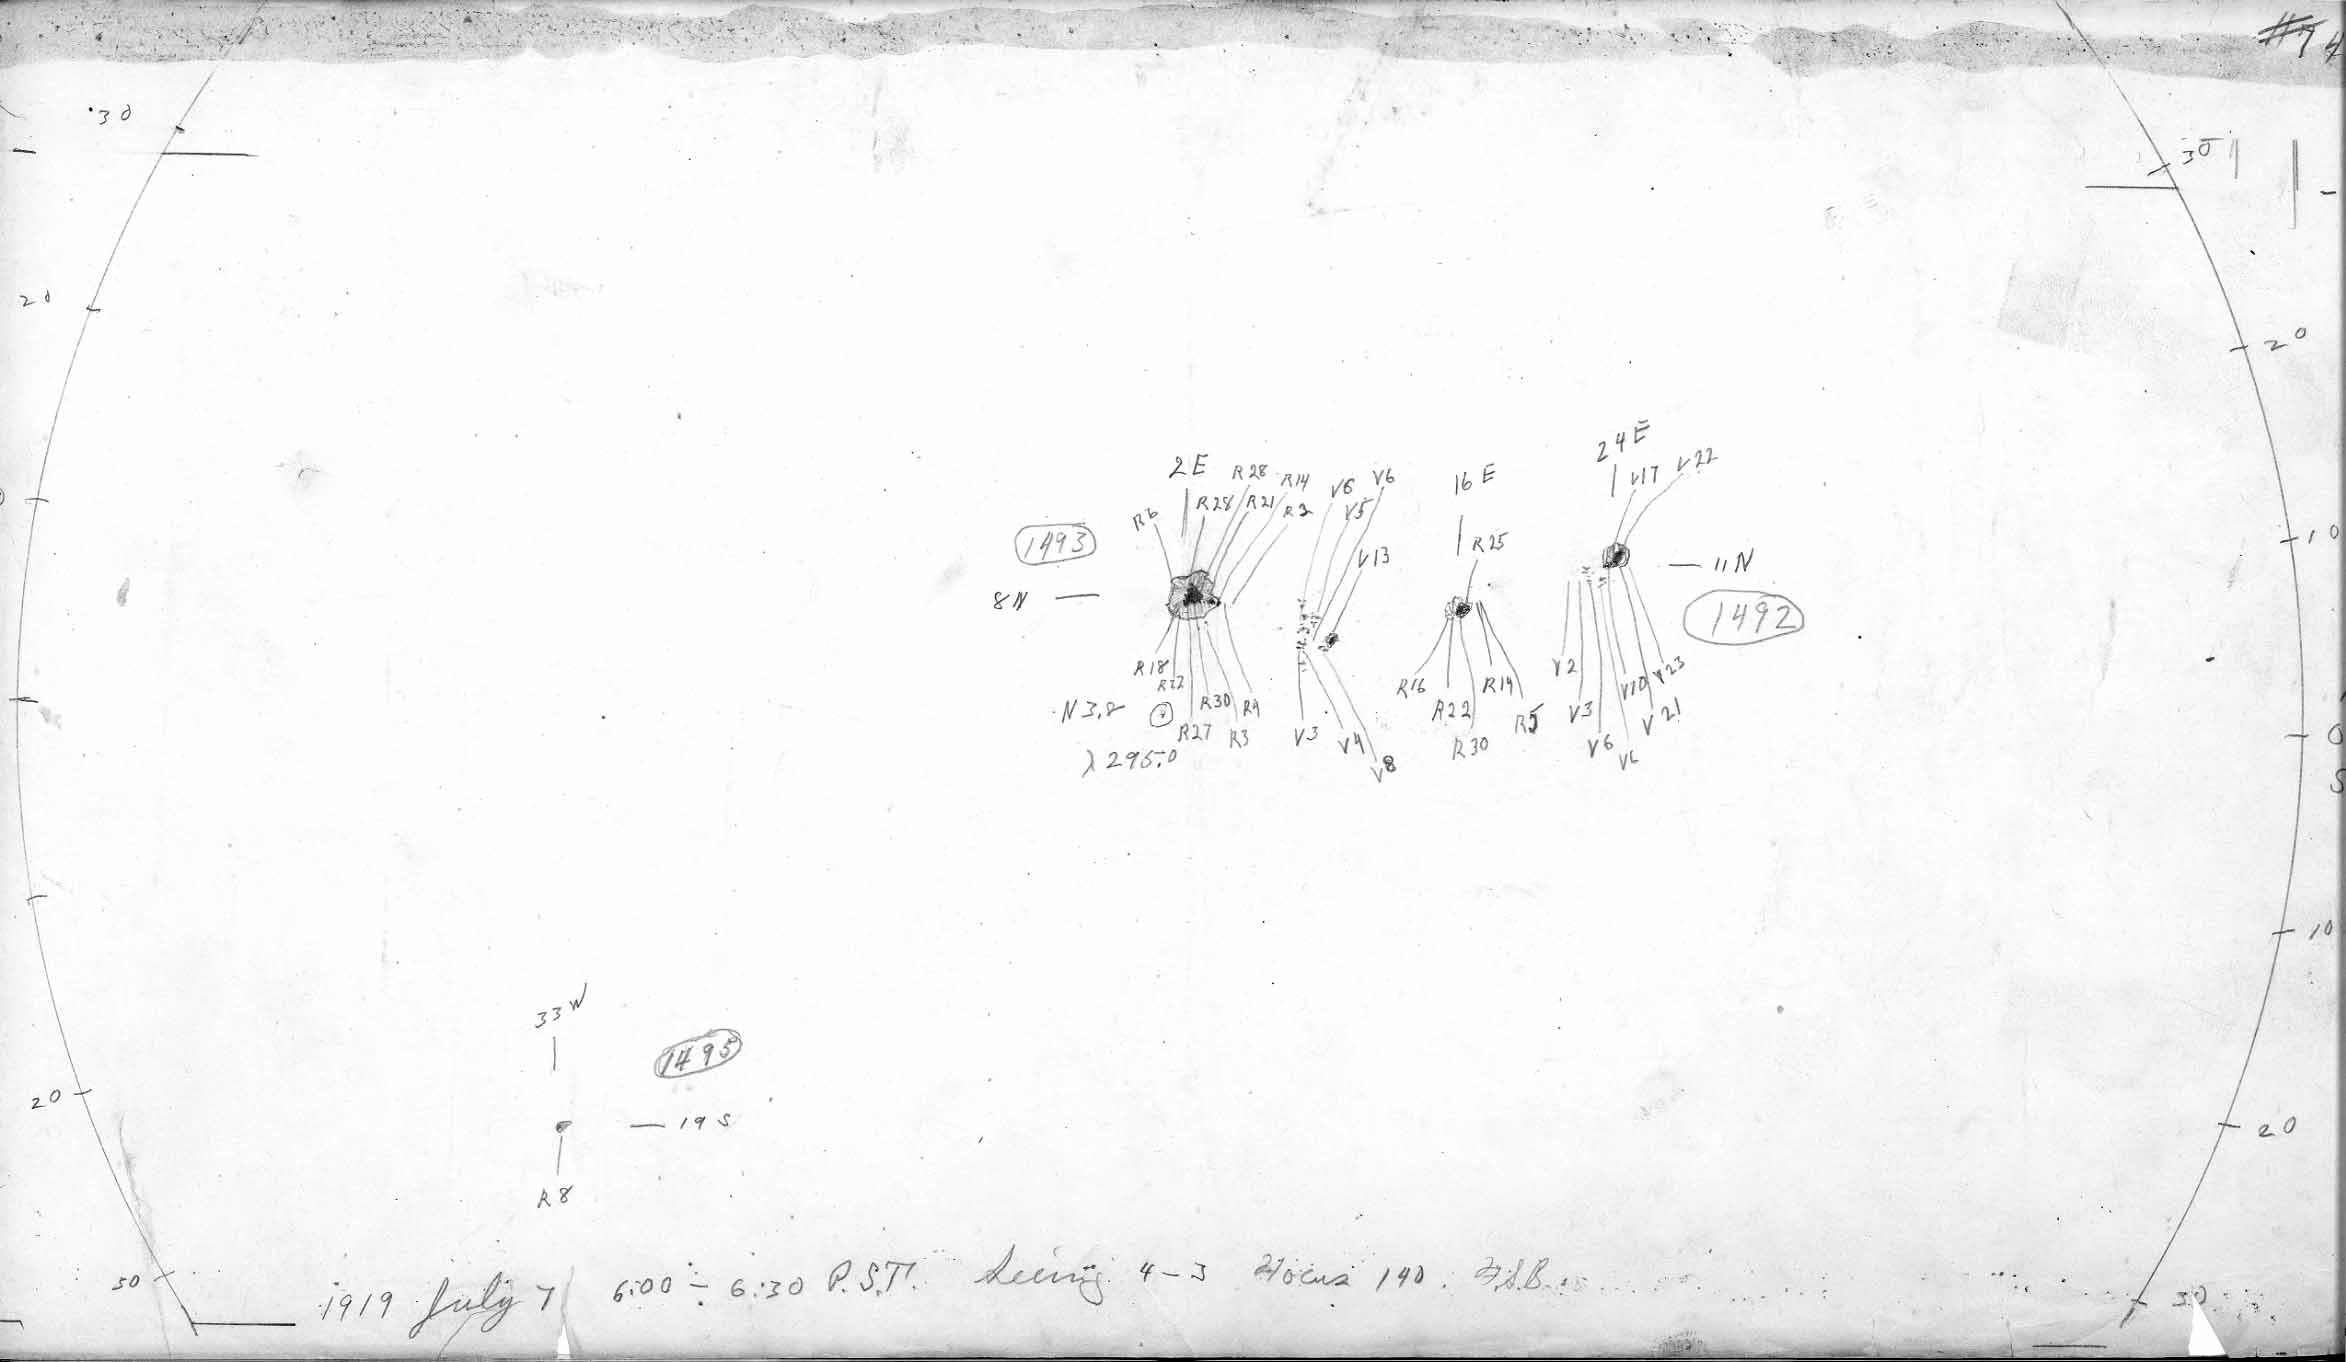 #74
30
30
20
20
24E
2E R28 R14 V6 V6 16E V17 V22
R6 R28 R21 R2 V5
10
1493 V13 R25
8N
11N
1492
R18 V2 V23
R22 R16 R14 V10
N3.8 R30 R4 R22 R5 V3 V21
R27 R3 V3 V4 R30 V6 0
λ 295.0 V8 V6
S
10
33W
1495
20
19S
20
R8
30
1919 July 7 6:00 - 6:30 P.S.T. Seeing 4-3 Focus 140. F.S.B.
30